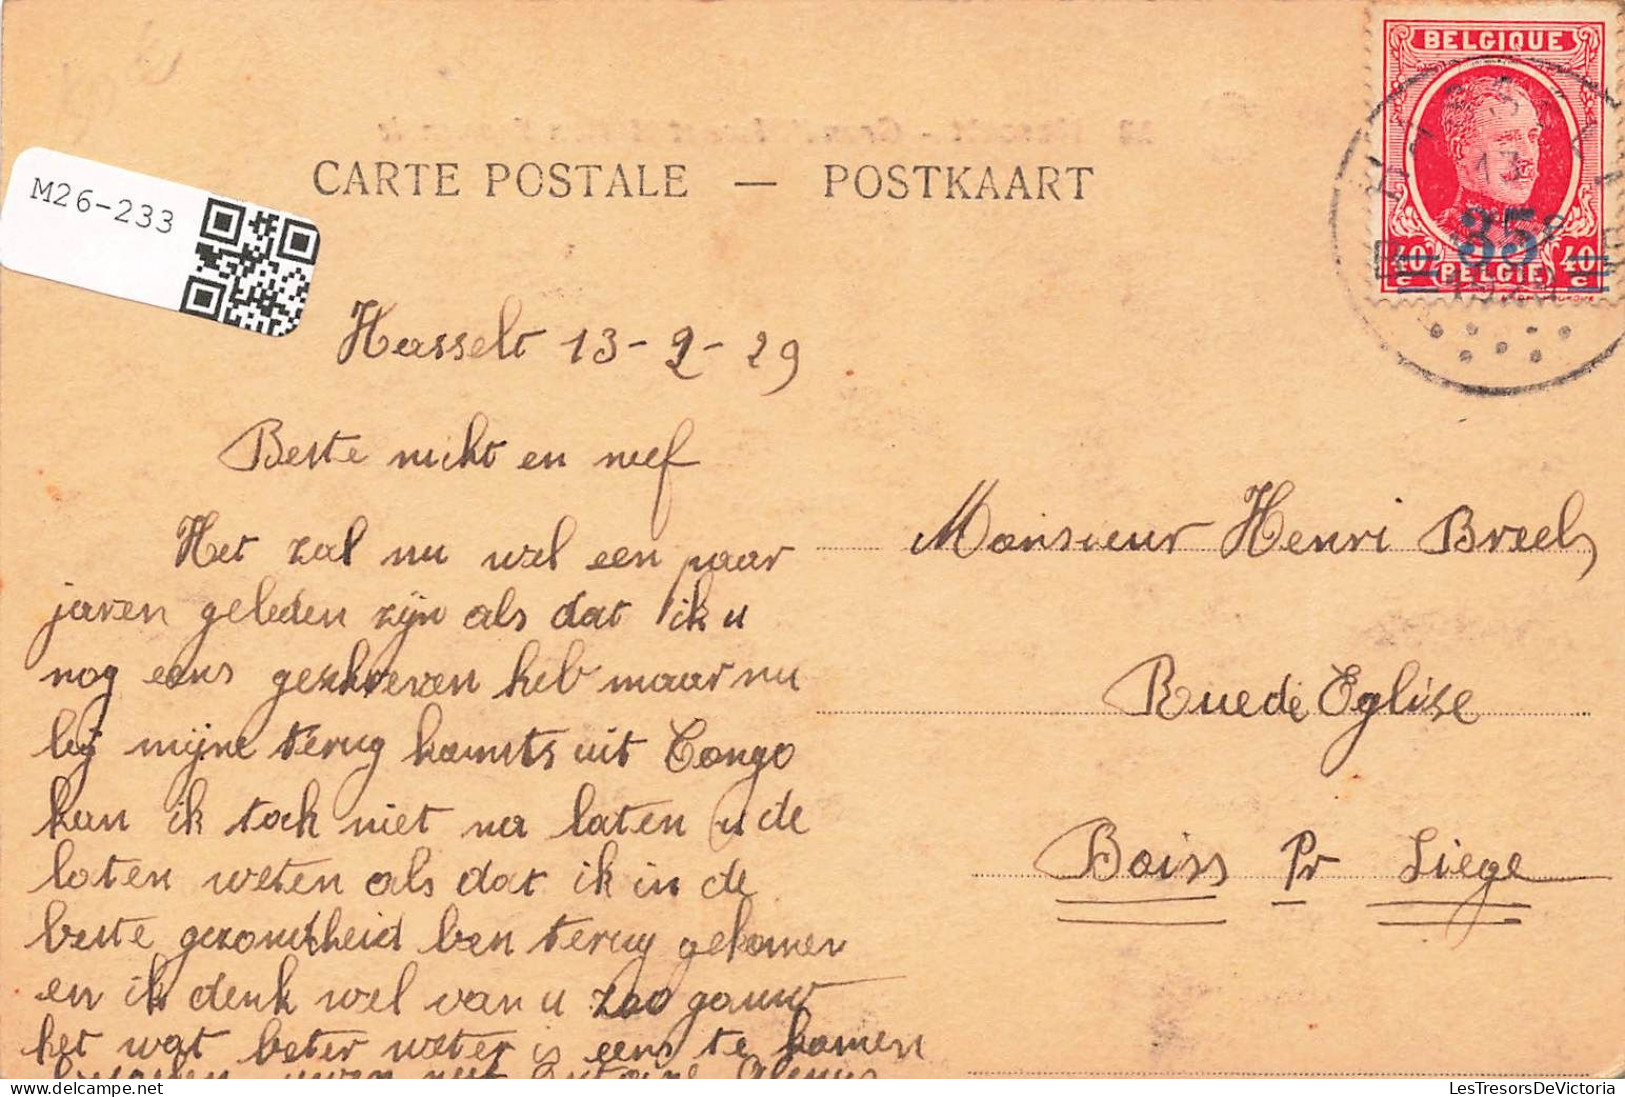 M26-233
CARTE POSTALE — POSTKAART
BELGIQUE
35c
40 40
c BELGIE c
13
1929
Hasselt 13-2-29
Beste nicht en neef
Het zal nu wel een paar
jaren geleden zijn als dat ik u
nog eens geschreven heb maar nu
bij mijne terug komts uit Congo
kan ik toch niet na laten u de
laten weten als dat ik in de
beste gezondheid ben terug gekomen
en ik denk wel van u zoo gauw
het wat beter weter is eens te komen
Monsieur Henri Breels
Rue de Eglise
Boiss Pr Liege
LesTresorsDeVictoria